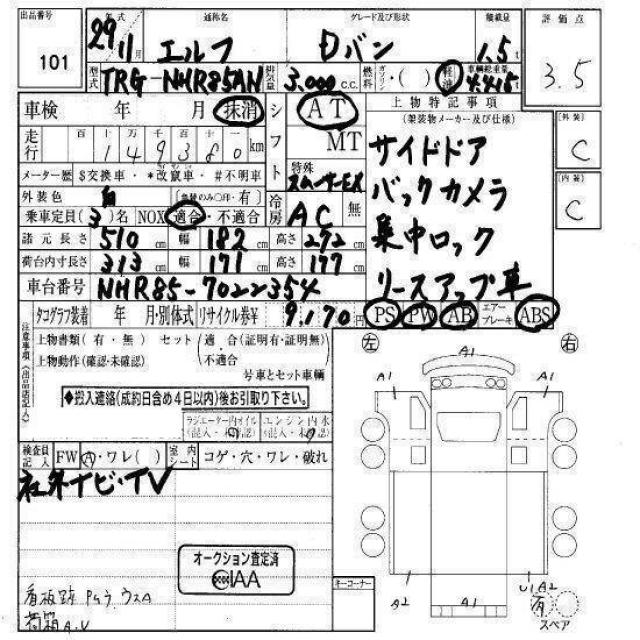 出品番号 101
年式 29 11月
通称名 エルフ
グレード及び形状 Dバン
積載量 1.5t
評価点 3.5
型式 TRG-NHR85AN
排気量 3,000 C.C.
燃料 ガソリン・( )軽油
車輌総重量 4.415t
車検 年 月 抹消
シフト AT MT
上物特記事項
(架装物メーカー及び仕様)
外装 C
内装 C
走行 百十万千百十一
149380 km
サイドドア
バックカメラ
集中ロック
リースアップ車
メーター歴 $交換車・*改竄車・#不明車
特殊 スムーサーEX
外装色 白 有
冷房 AC 無
乗車定員(3)名 NOX 適合・不適合
諸元長さ 510cm 幅 182cm 高さ 272cm
荷台内寸長さ 313cm 幅 171cm 高さ 177cm
車台番号 NHR85-7022354
タコグラフ装着 年 月・別体式 リサイクル券¥ 9,170円
PS PW AB エアーブレーキ ABS
注意事項(出品店記入)
上物書類(有・無) セット(適 合(証明有・証明無)
上物動作(確認・未確認) 不適合
号車とセット車輌
◆搬入連絡(成約日含め4日以内)後お引取り下さい。
ラジエーター内オイル エンジン内水
検査員記入 FW A・ワレ( ) 室内シート コゲ・穴・ワレ・破れ
社外ナビ・TV
左 右
A1
A1 A1
オークション査定済
AIAA
キーコーナー
看板跡
荷箱A.U
A2 A1 U1 A2
有
スペア